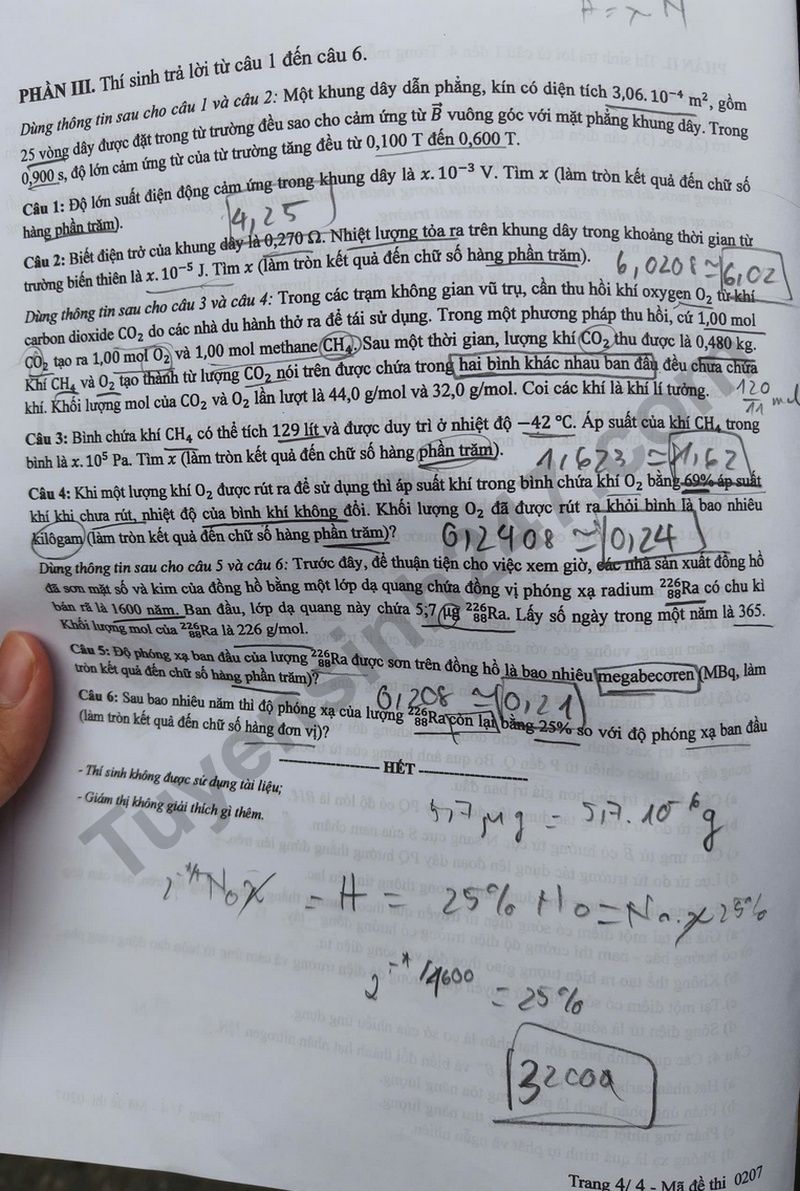 H = x N
PHẦN III. Thí sinh trả lời từ câu 1 đến câu 6.
Dùng thông tin sau cho câu 1 và câu 2: Một khung dây dẫn phẳng, kín có diện tích 3,06. 10⁻⁴ m², gồm
25 vòng dây được đặt trong từ trường đều sao cho cảm ứng từ B⃗ vuông góc với mặt phẳng khung dây. Trong
0,900 s, độ lớn cảm ứng từ của từ trường tăng đều từ 0,100 T đến 0,600 T.
Câu 1: Độ lớn suất điện động cảm ứng trong khung dây là x. 10⁻³ V. Tìm x (làm tròn kết quả đến chữ số
hàng phần trăm).
4,25
Câu 2: Biết điện trở của khung dây là 0,270 Ω. Nhiệt lượng tỏa ra trên khung dây trong khoảng thời gian từ
trường biến thiên là x. 10⁻⁵ J. Tìm x (làm tròn kết quả đến chữ số hàng phần trăm).
6,0208 ≈ 6,02
Dùng thông tin sau cho câu 3 và câu 4: Trong các trạm không gian vũ trụ, cần thu hồi khí oxygen O₂ từ khí
carbon dioxide CO₂ do các nhà du hành thở ra để tái sử dụng. Trong một phương pháp thu hồi, cứ 1,00 mol
CO₂ tạo ra 1,00 mol O₂ và 1,00 mol methane CH₄. Sau một thời gian, lượng khí CO₂ thu được là 0,480 kg.
Khí CH₄ và O₂ tạo thành từ lượng CO₂ nói trên được chứa trong hai bình khác nhau ban đầu đều chưa chứa
khí. Khối lượng mol của CO₂ và O₂ lần lượt là 44,0 g/mol và 32,0 g/mol. Coi các khí là khí lí tưởng.
120/11 mol
Câu 3: Bình chứa khí CH₄ có thể tích 129 lít và được duy trì ở nhiệt độ −42 °C. Áp suất của khí CH₄ trong
bình là x. 10⁵ Pa. Tìm x (làm tròn kết quả đến chữ số hàng phần trăm).
1,623 ≈ 1,62
Câu 4: Khi một lượng khí O₂ được rút ra để sử dụng thì áp suất khí trong bình chứa khí O₂ bằng 69% áp suất
khí khi chưa rút, nhiệt độ của bình khí không đổi. Khối lượng O₂ đã được rút ra khỏi bình là bao nhiêu
kilôgam (làm tròn kết quả đến chữ số hàng phần trăm)?
0,2408 ≈ 0,24
Dùng thông tin sau cho câu 5 và câu 6: Trước đây, để thuận tiện cho việc xem giờ, các nhà sản xuất đồng hồ
đã sơn mặt số và kim của đồng hồ bằng một lớp dạ quang chứa đồng vị phóng xạ radium ²²⁶₈₈Ra có chu kì
bán rã là 1600 năm. Ban đầu, lớp dạ quang này chứa 5,7 μg ²²⁶₈₈Ra. Lấy số ngày trong một năm là 365.
Khối lượng mol của ²²⁶₈₈Ra là 226 g/mol.
Câu 5: Độ phóng xạ ban đầu của lượng ²²⁶₈₈Ra được sơn trên đồng hồ là bao nhiêu megabecơren (MBq, làm
tròn kết quả đến chữ số hàng phần trăm)?
0,208 ≈ 0,21
Câu 6: Sau bao nhiêu năm thì độ phóng xạ của lượng ²²⁶₈₈Ra còn lại bằng 25% so với độ phóng xạ ban đầu
(làm tròn kết quả đến chữ số hàng đơn vị)?
HẾT
- Thí sinh không được sử dụng tài liệu;
- Giám thị không giải thích gì thêm.
5,7 μg = 5,7. 10⁻⁶ g
= H = 25% H₀ = N₀. 25%
= 25%
3200
Trang 4/ 4 - Mã đề thi 0207
Tuyensinh247.com